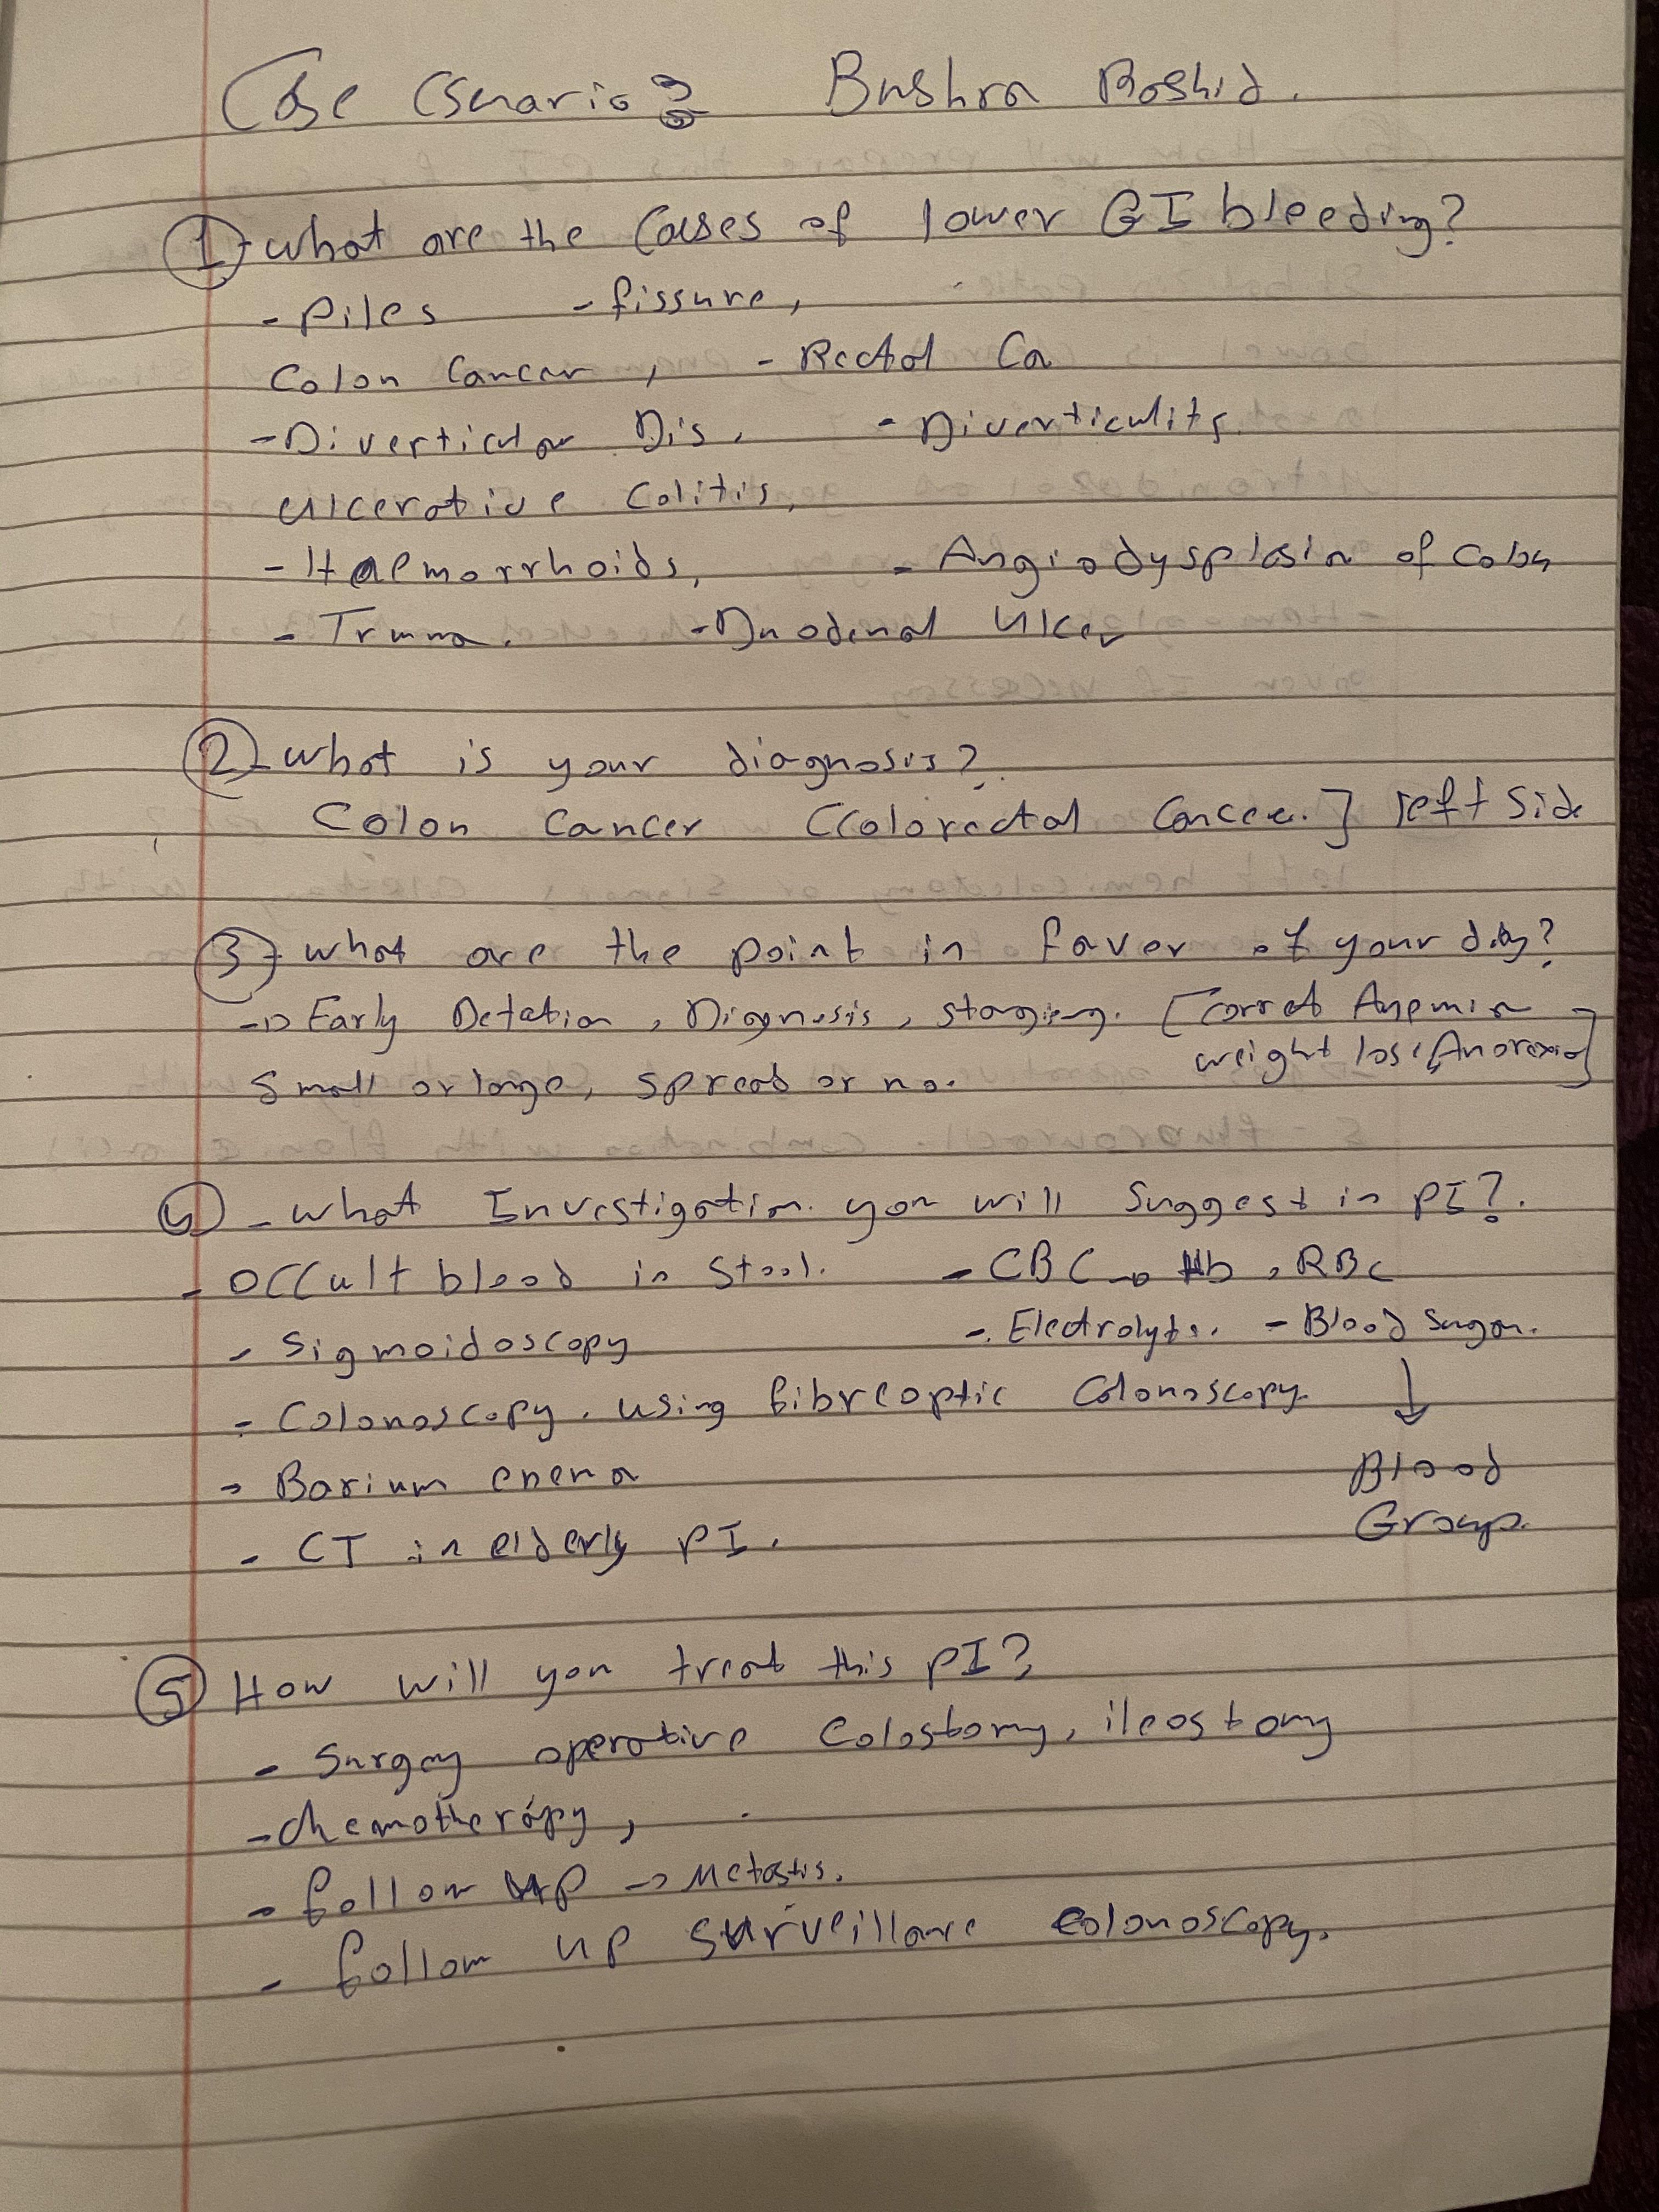 Case Csenario: Bushra Rashid.
1 - what are the Causes of lower GI bleeding?
- Piles - fissure,
Colon Cancer, - Rectal Ca
- Diverticular Dis, - Diverticulits
Ulcerative Colitis,
- Haemorrhoids, - Angiodysplasia of Colon
- Truma. - Duodenal Ulcer
2 - what is your diagnosis?
Colon Cancer (Colorectal Cancer.] left Side
3 - what are the point in faver of your diag?
-> Early Detation, Diagnosis, staging. [Corret Anemia
weight loss, Anorexia]
Small or large, spread or no.
4 - what Investigation you will Suggest in PI?.
- Occult blood in Stool. - CBC → Hb, RBC
- Sigmoidoscopy -. Electrolyte. - Blood Sugar.
- Colonoscopy. using fibreoptic Colonoscopy.
- Barium enema Blood
- CT in elderly PI. Group.
5 How will you treat this PI?
- Surgey operative Colostomy, ileostomy
- chemotherapy,
- follow up → Metastis.
- follow up surveillance colonoscopy.